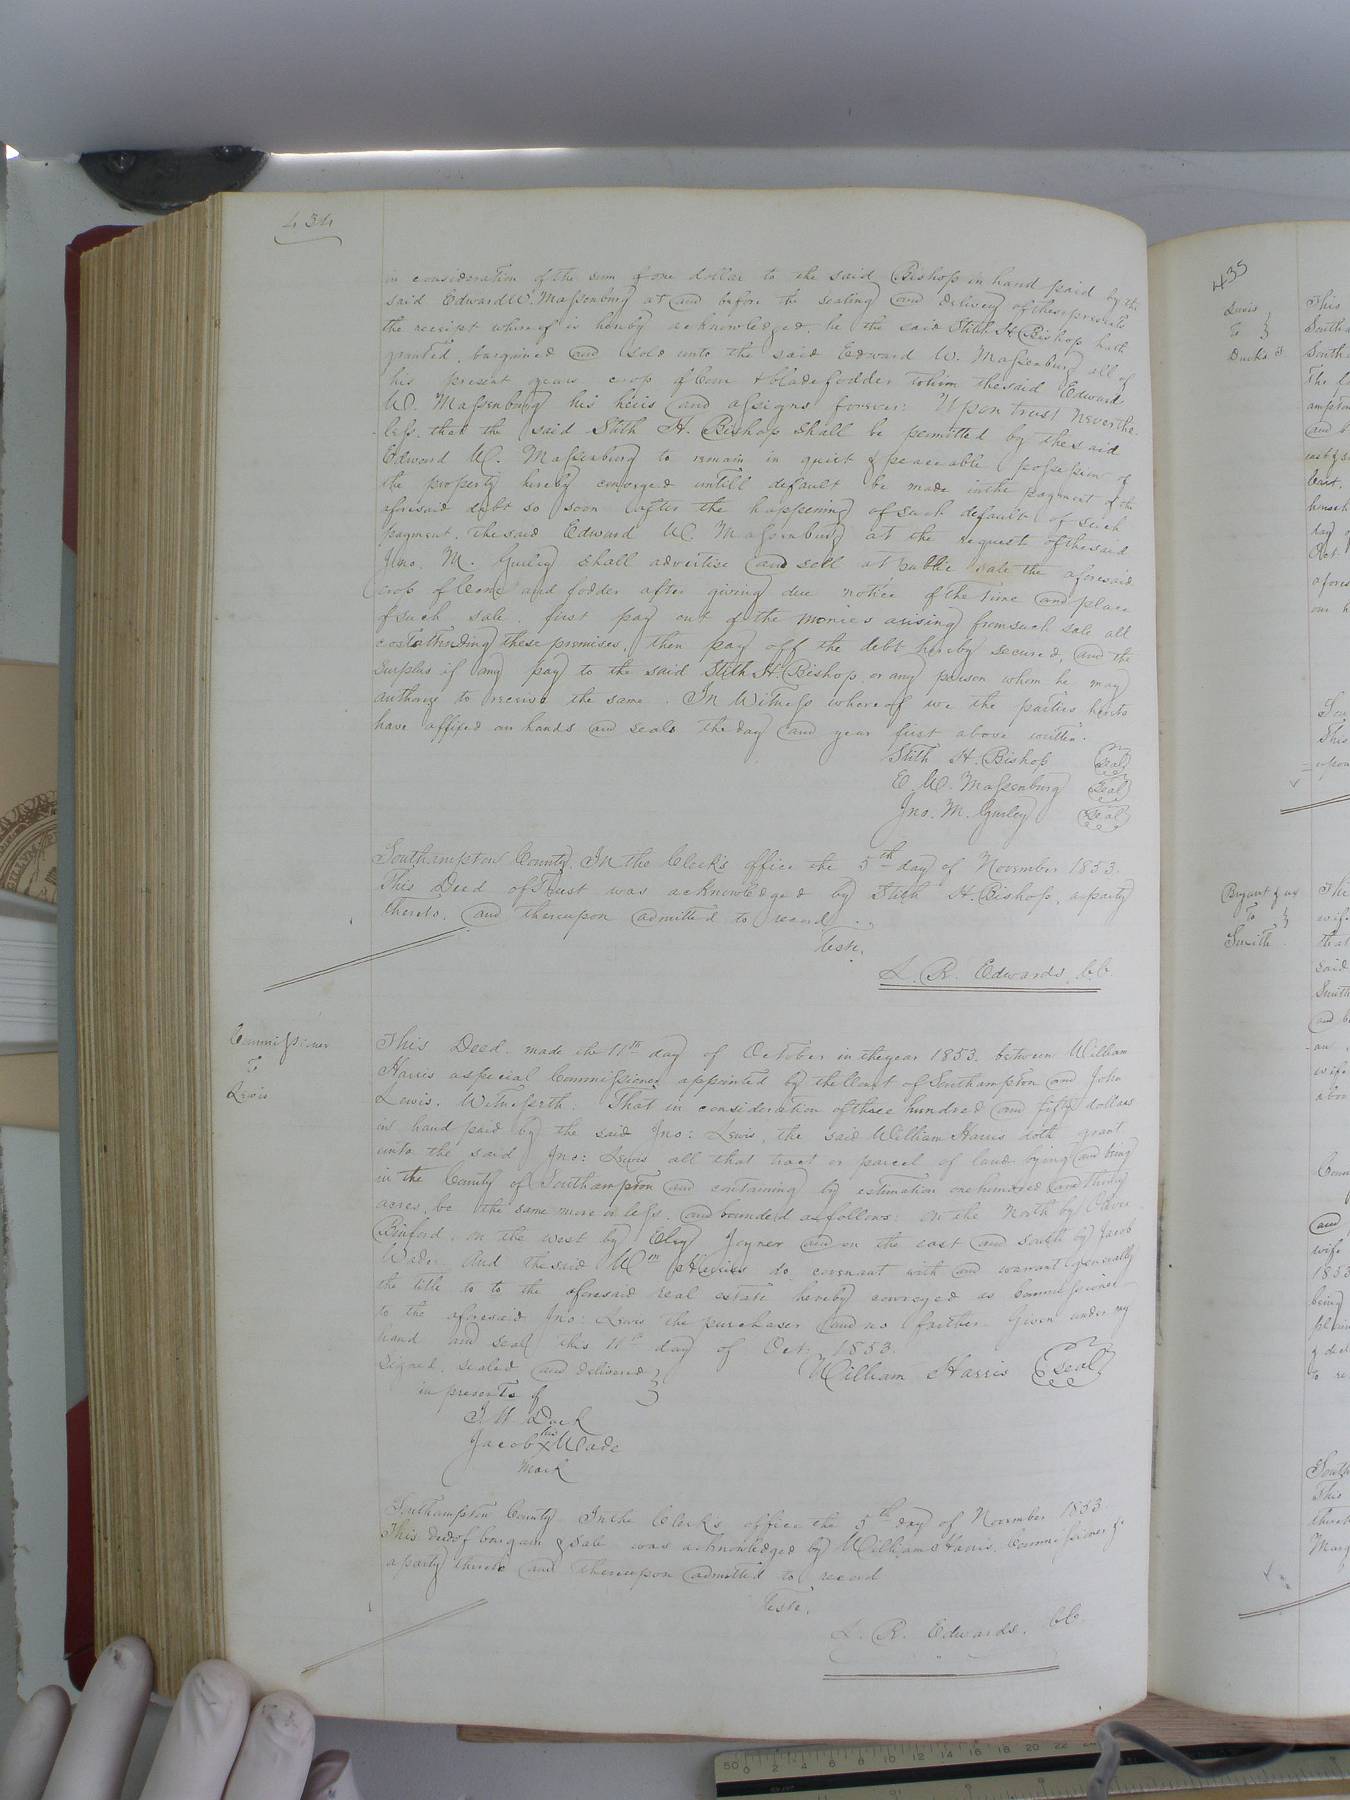 434
in consideration of the sum of one dollar to the said Bishop in hand paid by the
said Edward W. Massenburg at and before the sealing and delivery of these presents
the receipt whereof is hereby acknowledged, he the said Stith H. Bishop hath
granted, bargained and sold unto the said Edward W. Massenburg all of
his present years crop of Corn & blade fodder to him the said Edward
W. Massenburg his heirs and assigns forever: Upon trust neverthe-
less, that the said Stith H. Bishop shall be permitted by the said
Edward W. Massenburg to remain in quiet & peaceable possession of
the property hereby conveyed untill default be made in the payment of the
aforesaid debt so soon after the happening of such default of such
payment, the said Edward W. Massenburg at the request of the said
Jno. M. Gurley shall advertise and sell at public sale the aforesaid
crop of Corn and fodder after giving due notice of the time and place
of such sale, first pay out of the monies arising from such sale all
cost attending these premises, then pay off the debt hereby secured, and the
surplus if any pay to the said Stith H. Bishop or any person whom he may
authorize to receive the same. In Witness whereof we the parties hereto
have affixed our hands and seals the day and year first above written.
Stith H. Bishop seal
E. W. Massenburg seal
Jno. M. Gurley seal
Southampton County. In the Clerk's office the 5th day of November 1853.
This Deed of Trust was acknowledged by Stith H. Bishop, a party
thereto, and thereupon admitted to record.
Teste,
L. R. Edwards, C.C.
Commissioner
To
Lewis
This Deed made the 11th day of October in the year 1853, between William
Harris a special Commissioner appointed by the Court of Southampton and John
Lewis. Witnesseth: That in consideration of three hundred and fifty dollars
in hand paid by the said Jno: Lewis, the said William Harris doth grant
unto the said Jno: Lewis all that tract or parcel of land lying and being
in the County of Southampton and containing by estimation one hundred and thirty
acres, be the same more or less, and bounded as follows: on the North by
Binford, on the west by Elry Joyner and on the east and south by Jacob
Wade. And the said Wm Harris do covenant with and warrant generally
the title to to the aforesaid real estate hereby conveyed as Commissioner
to the aforesaid Jno: Lewis the purchaser and no farther. Given under my
hand and seal this 11th day of Oct. 1853.
Signed, sealed and delivered William Harris seal
in presents of
J. W. Duck
his
Jacob X Wade
mark
Southampton County. In the Clerk's office the 5th day of November 1853.
This deed of bargain & sale was acknowledged by William Harris, Commissioner &c
a party thereto and thereupon admitted to record
Teste,
L. R. Edwards, C.C.
435
Lewis
To
Duck
Bryant & ux
To
Smith